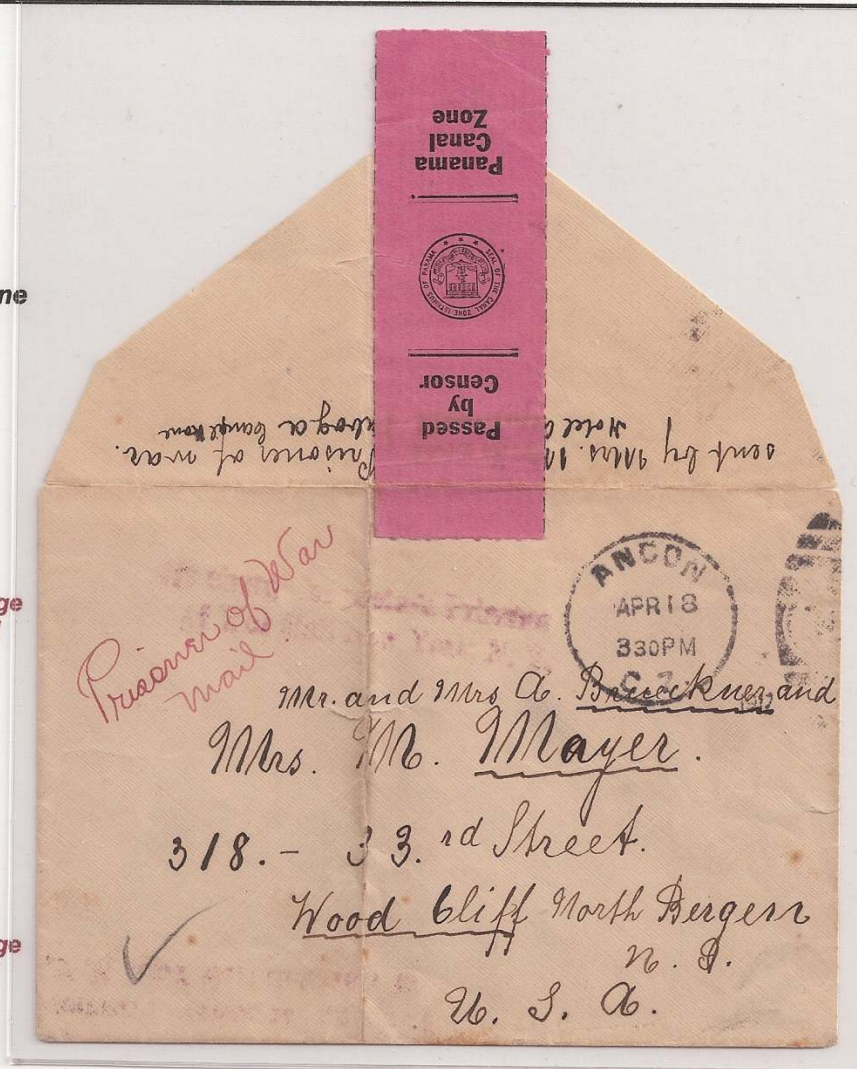 Panama
Canal
Zone
SEAL OF THE CANAL ZONE ISTHMUS OF PANAMA
Passed
by
Censor
sent by Mrs. M Prisoner of war.
Hotel Canal Zone
ne
ge
ge
Prisoner of War
mail
ANCON
APR 18
330PM
C.Z.
Mr. and Mrs A. Brueckner and
Mrs. M. Mayer.
318.- 33.rd Street.
Wood Cliff North Bergen
N. J.
U. S. A.